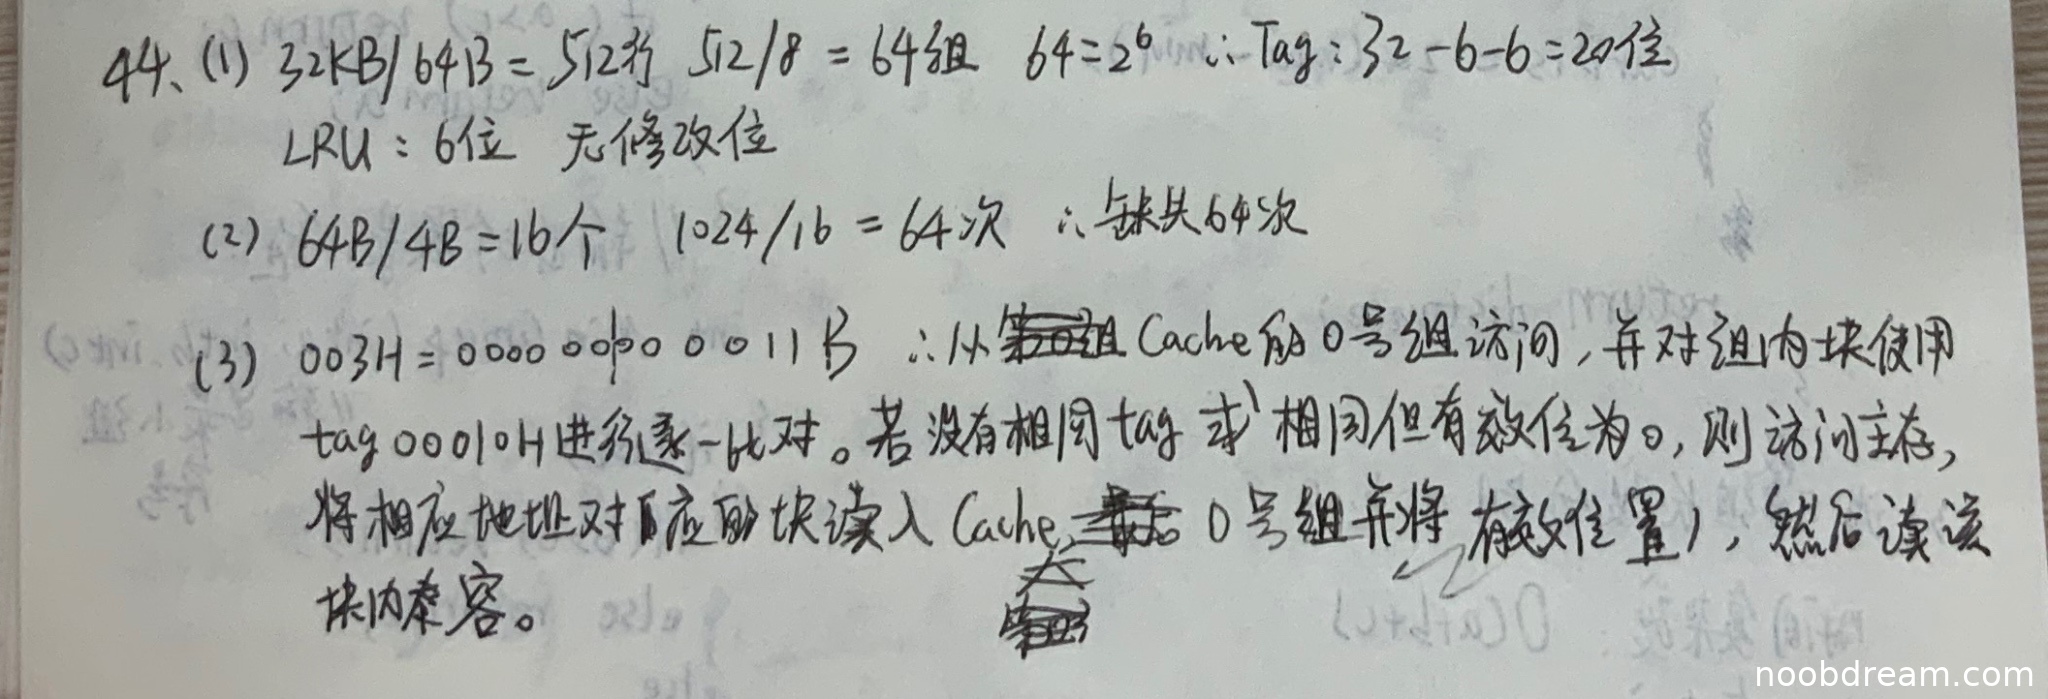 44、(1) 32KB/64B = 512行 512/8 = 64组 64=2⁶ ∴Tag:32-6-6=20位
LRU:6位 无修改位
(2) 64B/4B=16个 1024/16 = 64次 ∴缺失64次
(3) 003H=0000 0000 0011B ∴从Cache的0号组访问,并对组内块使用
tag 00010H进行逐一比对。若没有相同tag或相同但有效位为0,则访问主存,
将相应地址对应的块读入Cache 0号组并将有效位置1,然后读该
块内容。
noobdream.com